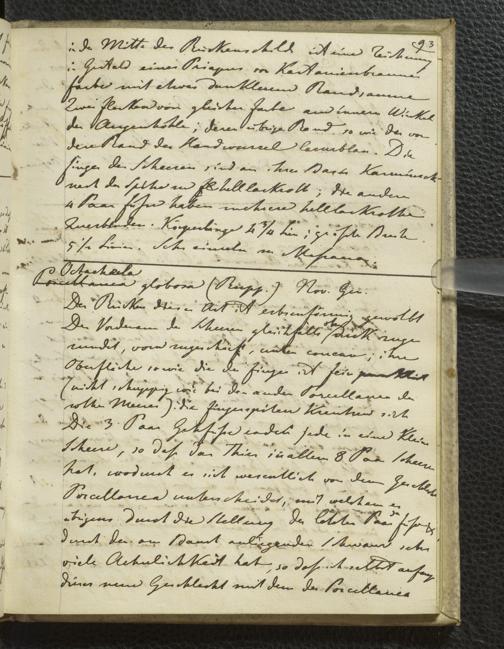 93
in der Mitte des Rückenschild ist eine Zeichnung
in Gestalt eines Priapus von Kastanienbrauner
farbe mit etwas dunklerem Rand, sowie
zwei flecken von gleicher farbe am innern Winkel
der Augenhöhle; deren übriger Rand so wie der vor-
dere Rand der Handwurzel lavablau. Die
finger der Scheeren sind an ihrer Basis Karminroth
nach der Spitze zu hellackroth; die andern
4 Paar füsse haben mehrere hellackrothe
Querbinden. Körperlänge 4¾ lin; größte Breite
5½ linien. Sehr einzeln zu
Octocheela
Porcellanea globosa (Rüpp.) Nov. Gen.
Der Rücken dieser Art ist erbsenförmig gewölbt
Der Vorderarm der Scheeren gleichfalls dick zuge
rundet, vorn zugeschärft, unten concav; ihre
Oberfläche sowie die der finger ist fein
(nicht schuppig wie bei den andern Porcellanea des
rothen Meeres) die fingerspitzen kreutzen sich
Die 3 Paar Gehfüsse enden jede in eine kleine
Scheere, so daß das Thier in allem 8 Paar Scheeren
hat, wodurch es sich wesentlich von dem Geschlecht
Porcellanea unterscheidet, mit welchem es
übrigens durch die Stellung des letzten Paar füsse &
durch den am Bauch anliegenden Schwanz sehr
viele Aehnlichkeit hat, so daß ich selbst anfangs
dieses neue Geschlecht mit dem der Porcellanea